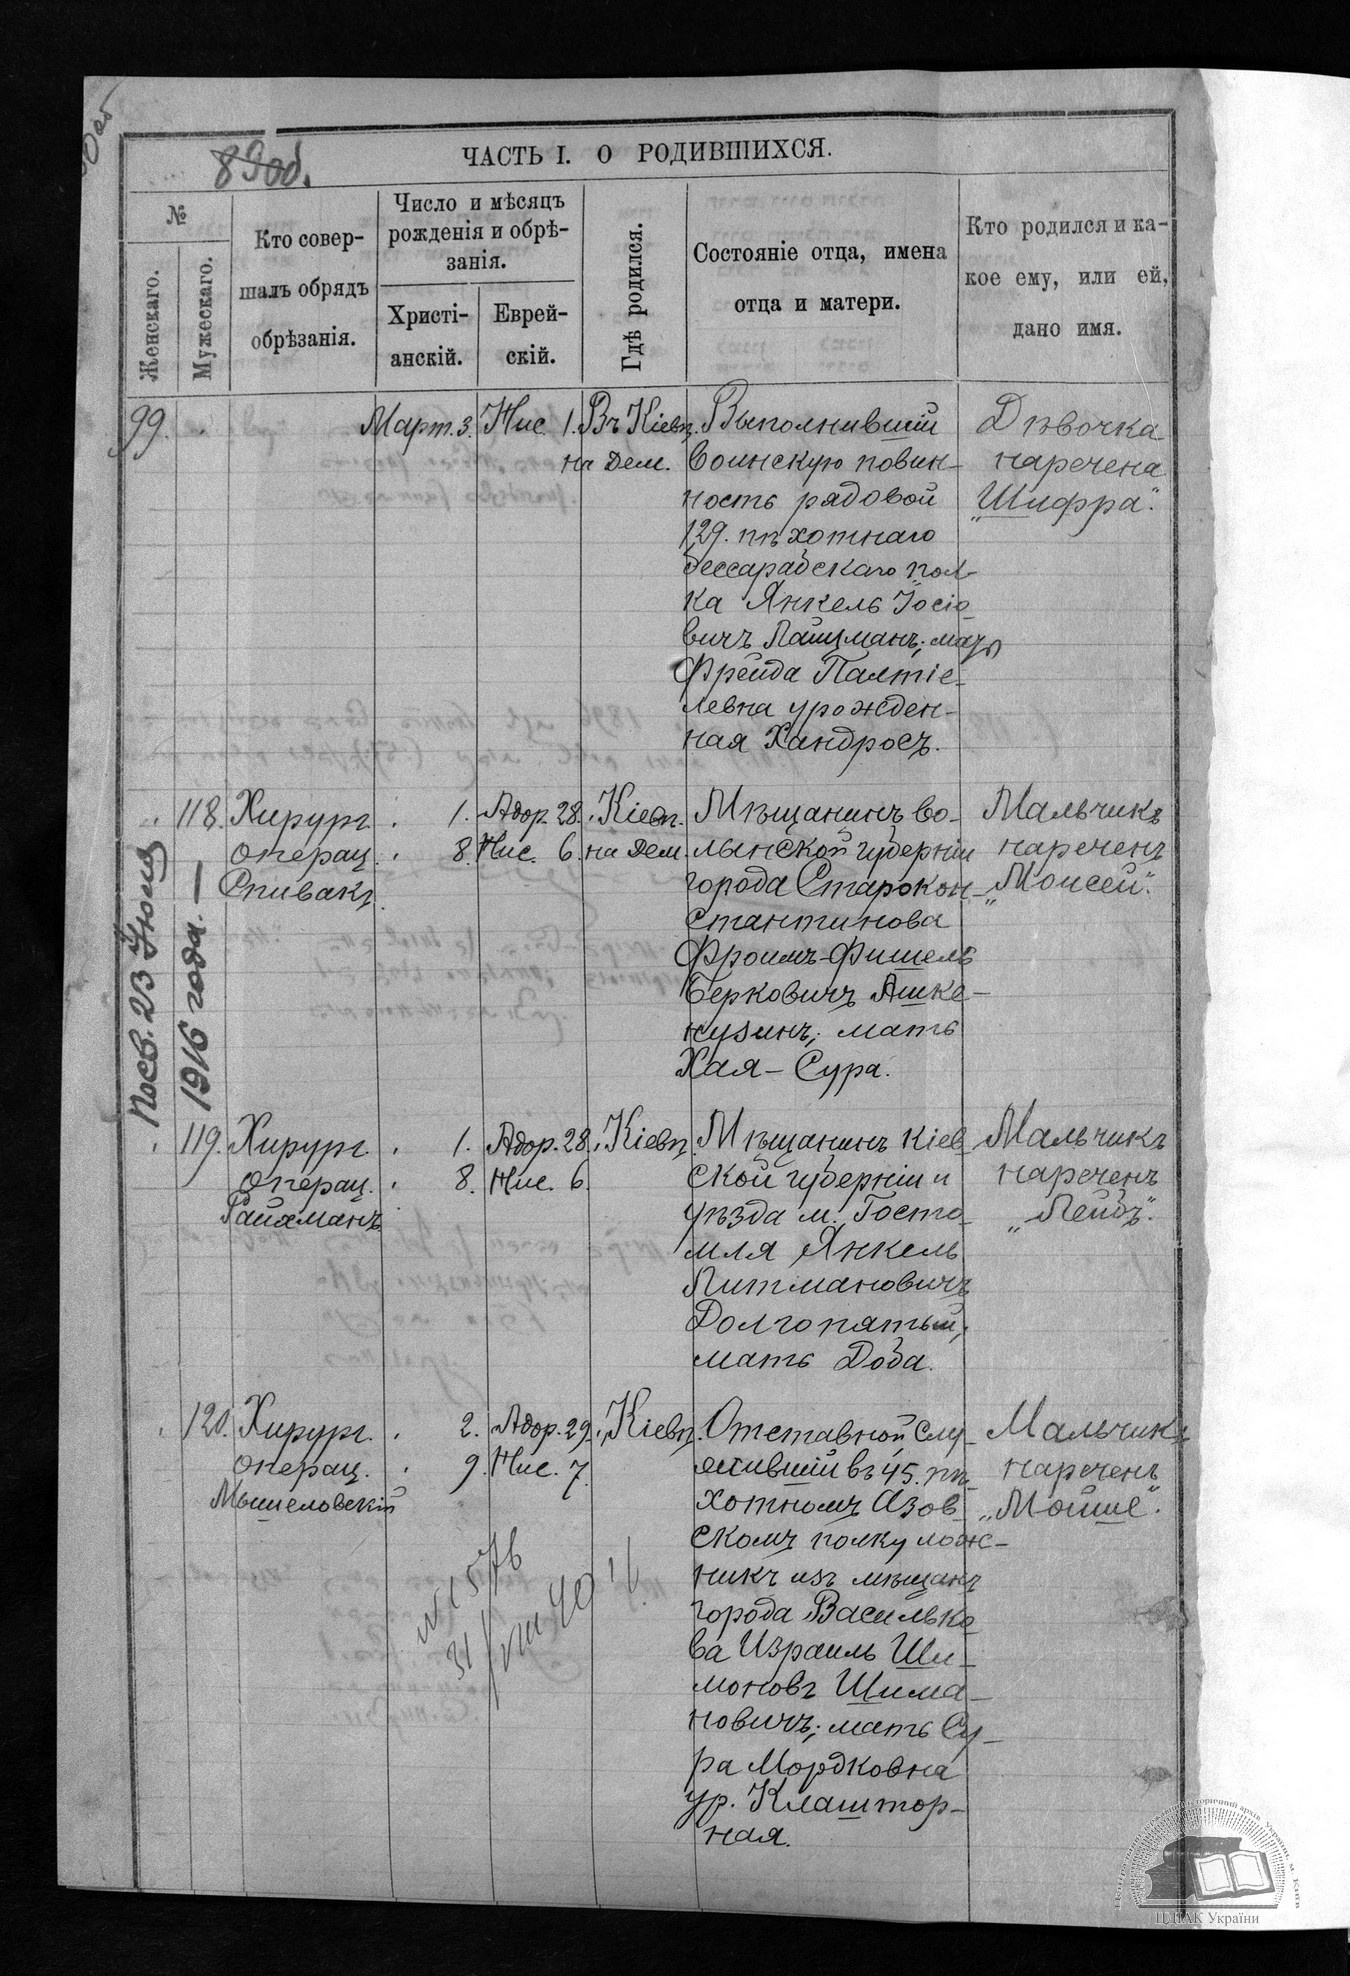 89об.
ЧАСТЬ I. О РОДИВШИХСЯ.
№
Женскаго.
Мужескаго.
Кто совер-
шалъ обрядъ
обрѣзанія.
Число и мѣсяцъ
рожденія и обрѣ-
занія.
Христі-
анскій.
Еврей-
скій.
Гдѣ родился.
Состояніе отца, имена
отца и матери.
Кто родился и ка-
кое ему, или ей,
дано имя.
99.
Март. 3.
Нис. 1.
Въ Кіевѣ
на Дем.
Выполнившій
воинскую повин-
ность рядовой
129. пѣхотнаго
бессарабскаго пол-
ка Янкель Іосіо
вичъ Лайцманъ; мать
Фрейда Палтіе-
левна урожден-
ная Хандросъ.
Дѣвочка
наречена
„Шифра".
118.
Хирург.
операц.
Спивакъ
1.
8.
Адор. 28.
Нис. 6.
Кіевѣ.
на Дем.
Мѣщанинъ во-
лынской губерніи
города Старокон-
стантинова
Фроимъ-Фишель
Берковичъ Ашке-
нузинъ; мать
Хая-Сура.
Мальчикъ
нареченъ
„Моисей".
Посв. 23 Июня
1916 года. —
119.
Хирург.
операц.
Райхманъ
1.
8.
Адор. 28.
Нис. 6.
Кіевѣ
Мѣщанинъ Кіев
ской губерніи и
уѣзда м. Госто-
мля Янкель
Питмановичъ
Долгопятый;
мать Доба.
Мальчикъ
нареченъ
„Лейбъ".
120.
Хирург.
операц.
Мышеловскій
2.
9.
Адор. 29.
Нис. 7.
Кіевѣ.
Отставной, слу-
жившій въ 45. пѣ-
хотномъ Азов
скомъ полку лож-
никъ изъ мѣщанъ
города Василько
ва Израиль Ши-
моновъ Шима-
новичъ; мать Су-
ра Мордковна
ур. Клаштор-
ная.
Мальчикъ
нареченъ
„Мойше".
ЦДІАК України